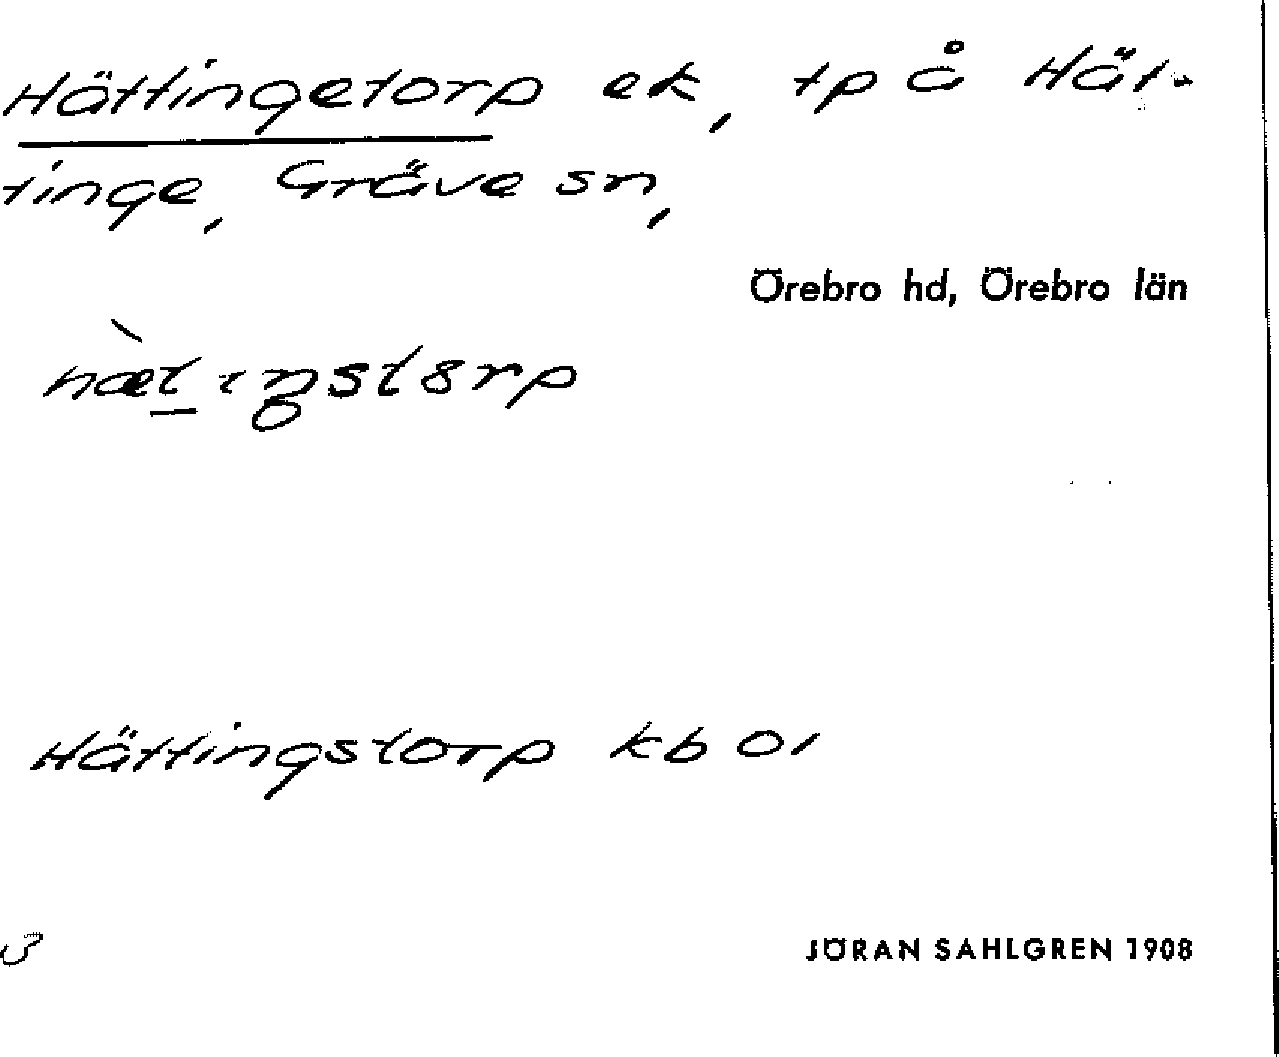 Hättingetorp ek, tp å Hät-
tinge, Gräve sn,
Örebro hd, Örebro län
hæ̀t̲ıŋstɜrp
Hättingstorp kb 01
JÖRAN SAHLGREN 1908